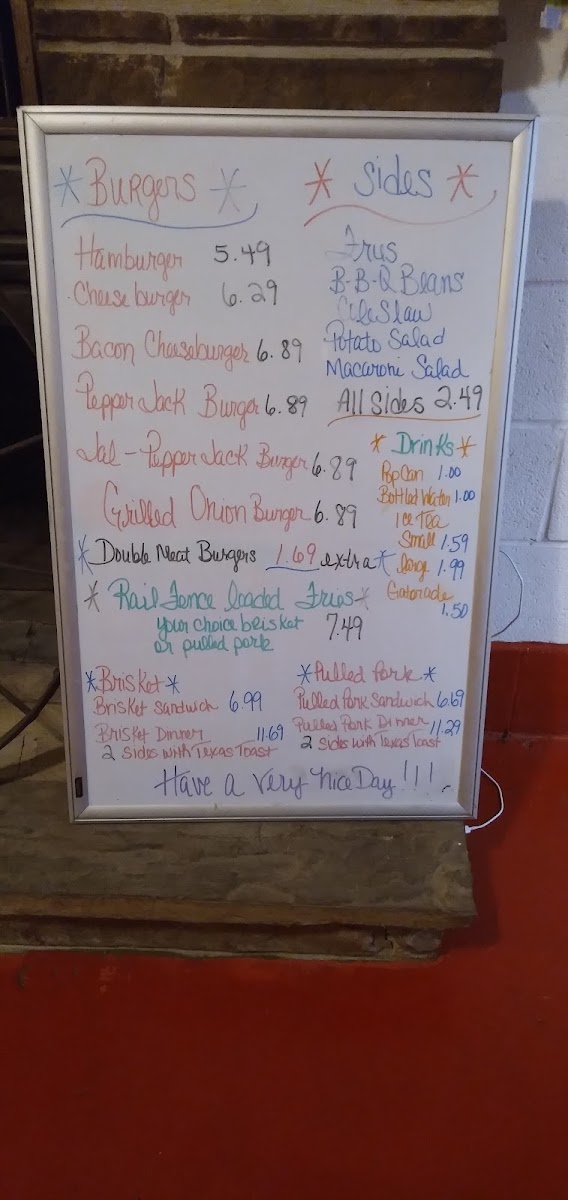 * Burgers *
Hamburger 5.49
Cheeseburger 6.29
Bacon Cheeseburger 6.89
Pepper Jack Burger 6.89
Jal-Pepper Jack Burger 6.89
Grilled Onion Burger 6.89
* Double Meat Burgers 1.69 extra *
* Rail Fence loaded Fries *
your choice brisket 7.49
or pulled pork
* Sides *
Fries
B-B-Q Beans
ColeSlaw
Potato Salad
Macaroni Salad
All Sides 2.49
* Drinks *
Pop Can 1.00
Bottled Water 1.00
Ice Tea
Small 1.59
large 1.99
Gatorade
1.50
* Brisket *
Brisket Sandwich 6.99
Brisket Dinner 11.69
2 Sides with Texas Toast
* Pulled Pork *
Pulled Pork Sandwich 6.69
Pulled Pork Dinner 11.29
2 Sides with Texas Toast
Have a very nice Day!!!.